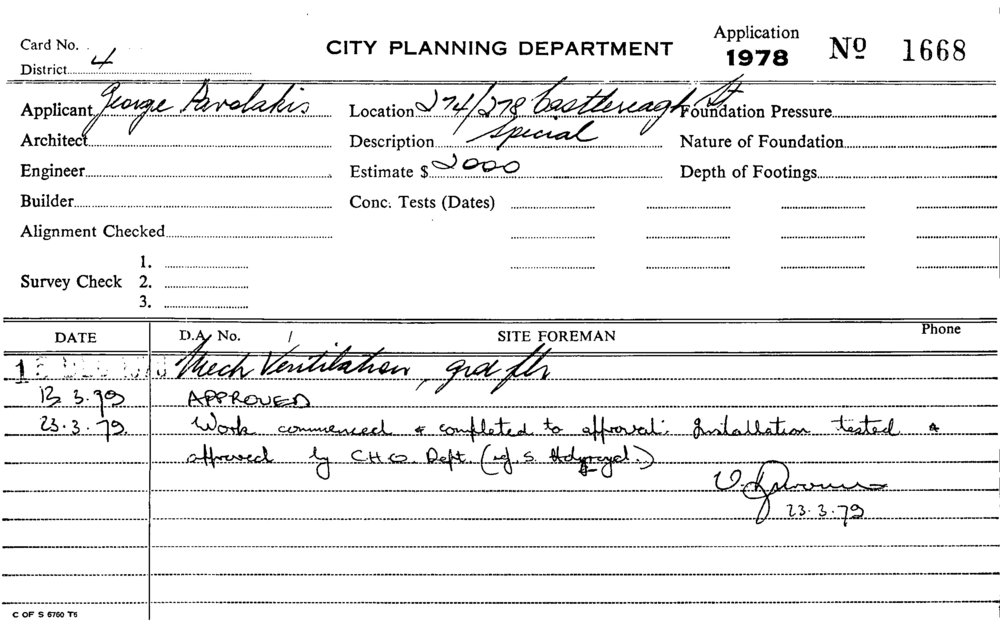 Card No.
CITY PLANNING DEPARTMENT
Application
1978 Nº 1668
District 4
Applicant George Pavolakis Location 274/278 Castlereagh St Foundation Pressure
Architect Description Special Nature of Foundation
Engineer Estimate $ 2000 Depth of Footings
Builder Conc. Tests (Dates)
Alignment Checked
1.
Survey Check 2.
3.
DATE D.A. No. / SITE FOREMAN Phone
Mech Ventilation, grd flr
13 3.79 APPROVED
23.3.79. Work commenced & completed to approval. Installation tested &
approved by C.H.O. Dept. (ref. S.
23.3.79
C OF S 6760 T5